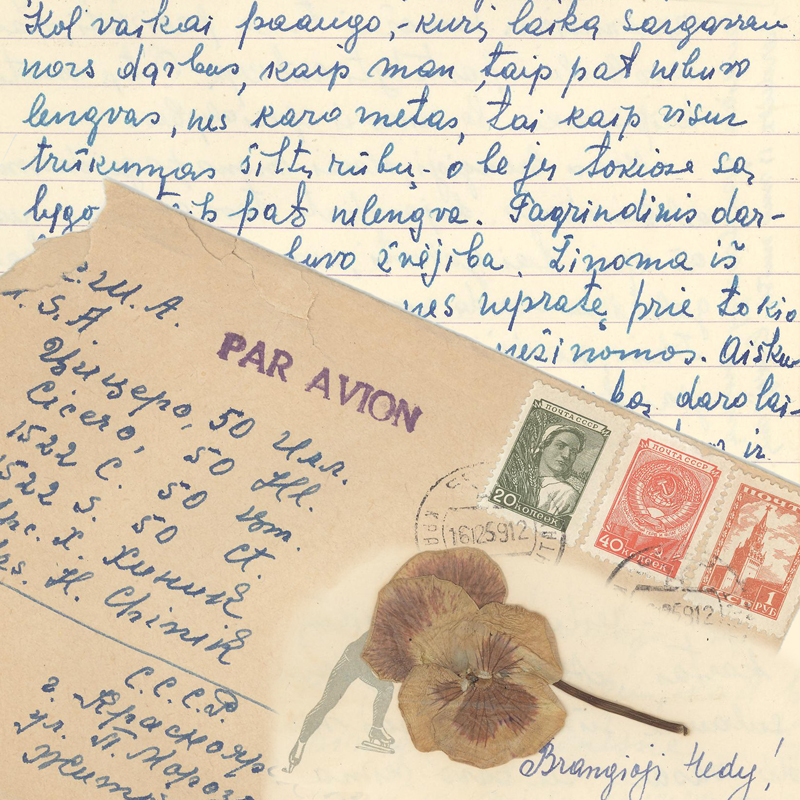 Kol vaikai paaugo, - kurį laiką sargavau
nors darbas, kaip man, taip pat nebuvo
lengvas, nes karo metas, tai kaip visur
trūkumas šiltų rūbų - o be jų tokiose są
lygo pat nelengva. Pagrindinis dar-
buvo žvejiba. Žinoma iš
nes nepratę prie tokio
nežinomos. Aišku
daro lai-
ir
Ш. А.
U. S. A.
Цицеро, 50 Илл.
Cicero, 50 Ill.
1522 С. 50 Ст.
1522 S. 50 Ct.
Мрс. Х. Хиник
Mrs. H. Chinik
PAR AVION
ПОЧТА СССР
20 КОПЕЕК
ПОЧТА СССР
40 КОПЕЕК
ПОЧТА
1 РУБ
16125912
С.С.С.Р.
г. Краснояр
ул. П. Мороз
Brangioji Hedy!